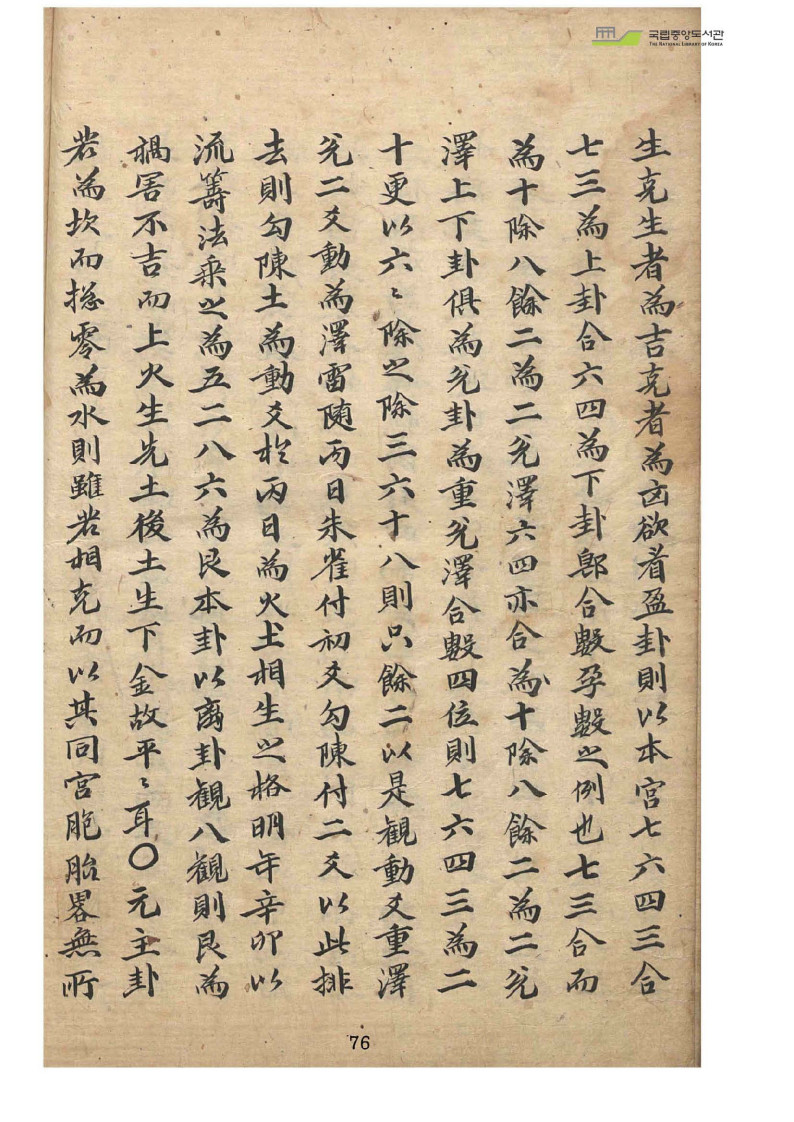 국립중앙도서관
THE NATIONAL LIBRARY OF KOREA
生克生者為吉克者為凶欲看盈卦則以本宮七六四三合
七三為上卦合六四為下卦卽合數孕數之例也七三合而
為十除八餘二為二兌澤六四亦合為十除八餘二為二兌
澤上下卦俱為兌卦為重兌澤合數四位則七六四三為二
十更以六〻除之除三六十八則只餘二以是觀動爻重澤
兌二爻動為澤雷隨丙日朱雀付初爻勾陳付二爻以此排
去則勾陳土為動爻於丙日為火土相生之格明年辛卯以
流籌法乘之為五二八六為艮本卦以离卦觀八觀則艮為
禍害不吉而上火生先土後土生下金故平〻耳○元主卦
若為坎而揔零為水則雖若相克而以其同宮胞胎畧無所
76